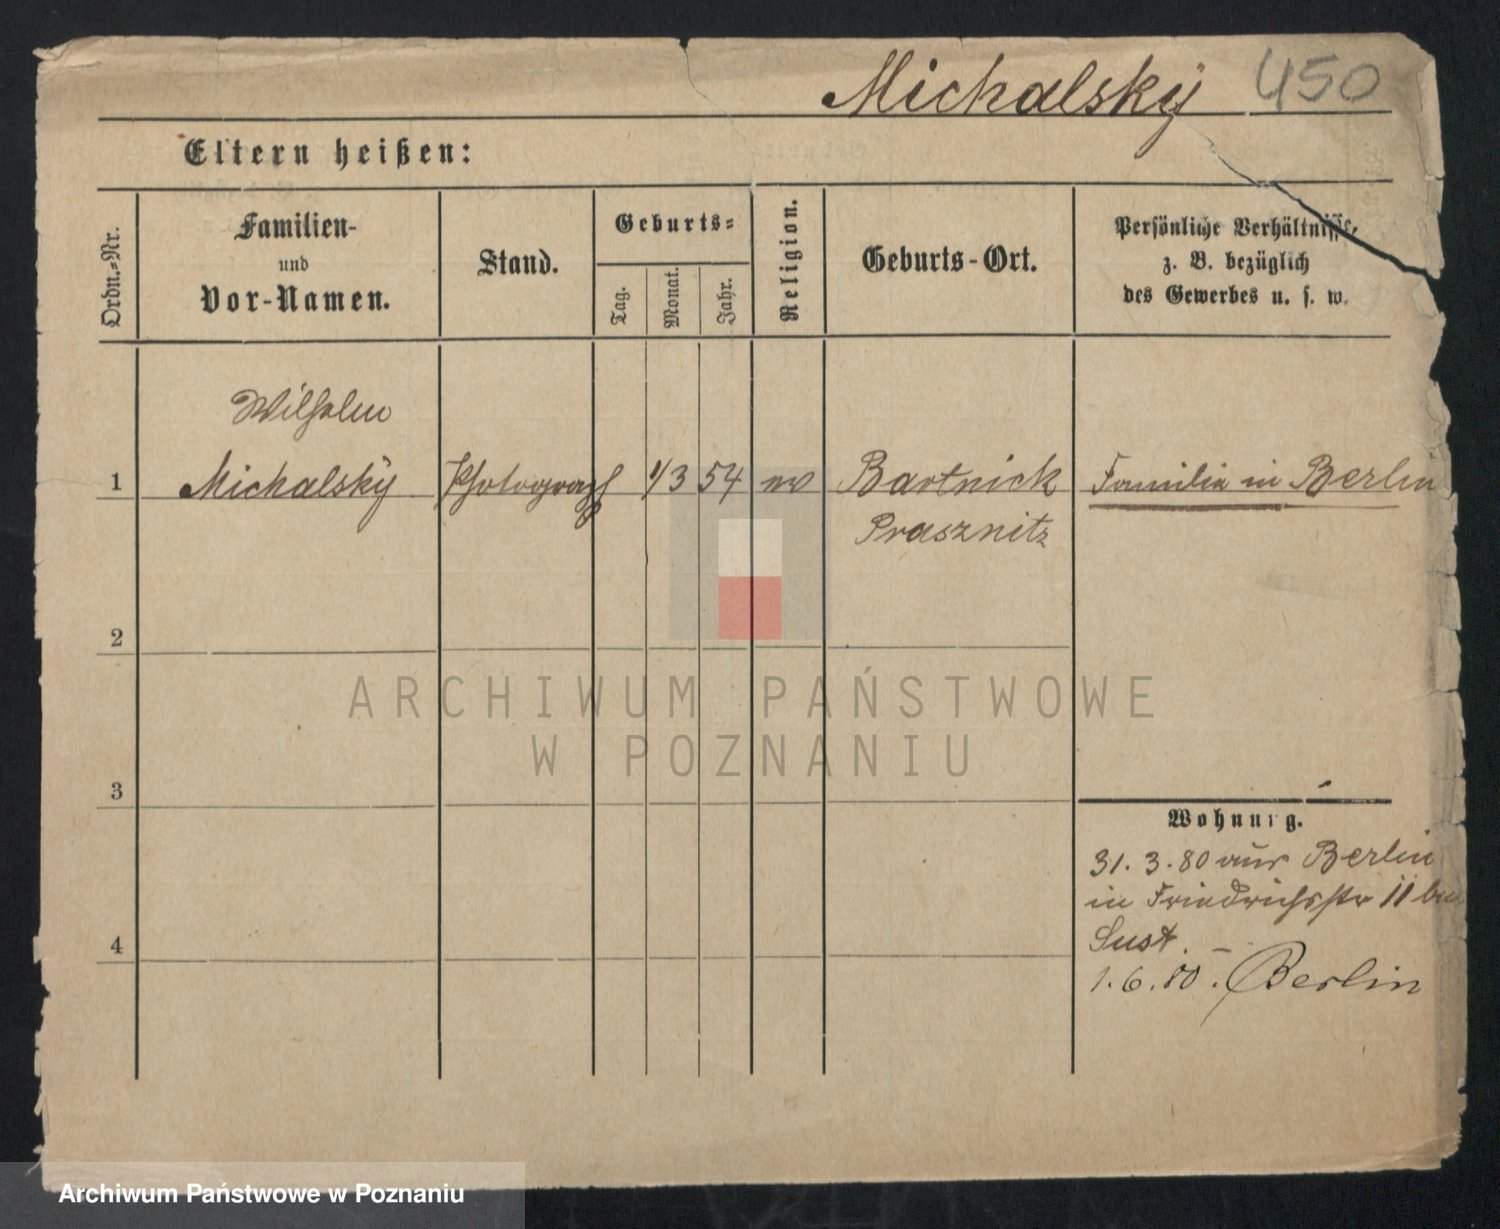 Michalsky 450
Eltern heißen:
Ordn.-Nr.
Familien-
und
Vor-Namen.
Stand.
Geburts-
Tag.
Monat.
Jahr.
Religion.
Geburts-Ort.
Persönliche Verhältnisse,
z. B. bezüglich
des Gewerbes u. s. w.
Wilhelm
1 Michalsky Photograph 1/3 54 ev Bartnick Familie in Berlin
Prasznitz
2
3
4
Wohnung.
31. 3. 80 aus Berlin
in Friedrichsstr 11 bei
Sust. –
1. 6. 80. Berlin
ARCHIWUM PAŃSTWOWE
W POZNANIU
Archiwum Państwowe w Poznaniu